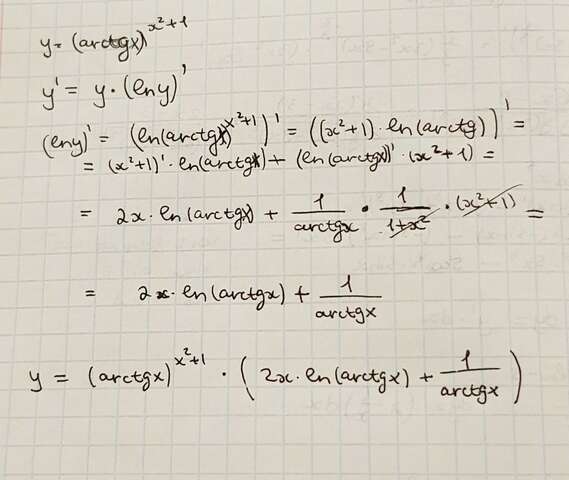 y = (arctgx)^{x²+1}
y' = y · (lny)'
(lny)' = (ln(arctgx)^{x²+1})' = ((x²+1) · ln(arctg))' =
= (x²+1)' · ln(arctgx) + (ln(arctgx))' · (x²+1) =
= 2x · ln(arctgx) + 1/arctgx · 1/1+x² · (x²+1) =
= 2x · ln(arctgx) + 1/arctgx
y = (arctgx)^{x²+1} · (2x · ln(arctgx) + 1/arctgx)